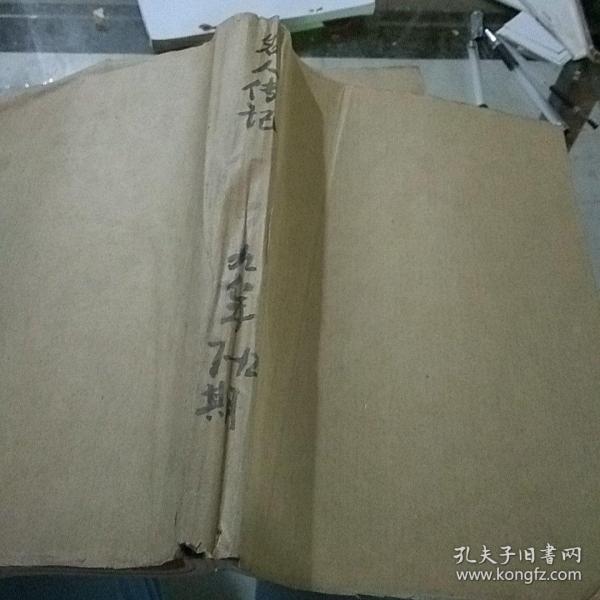 名人传记
九八年
7-12
期
孔夫子旧書网
www.kongfz.com